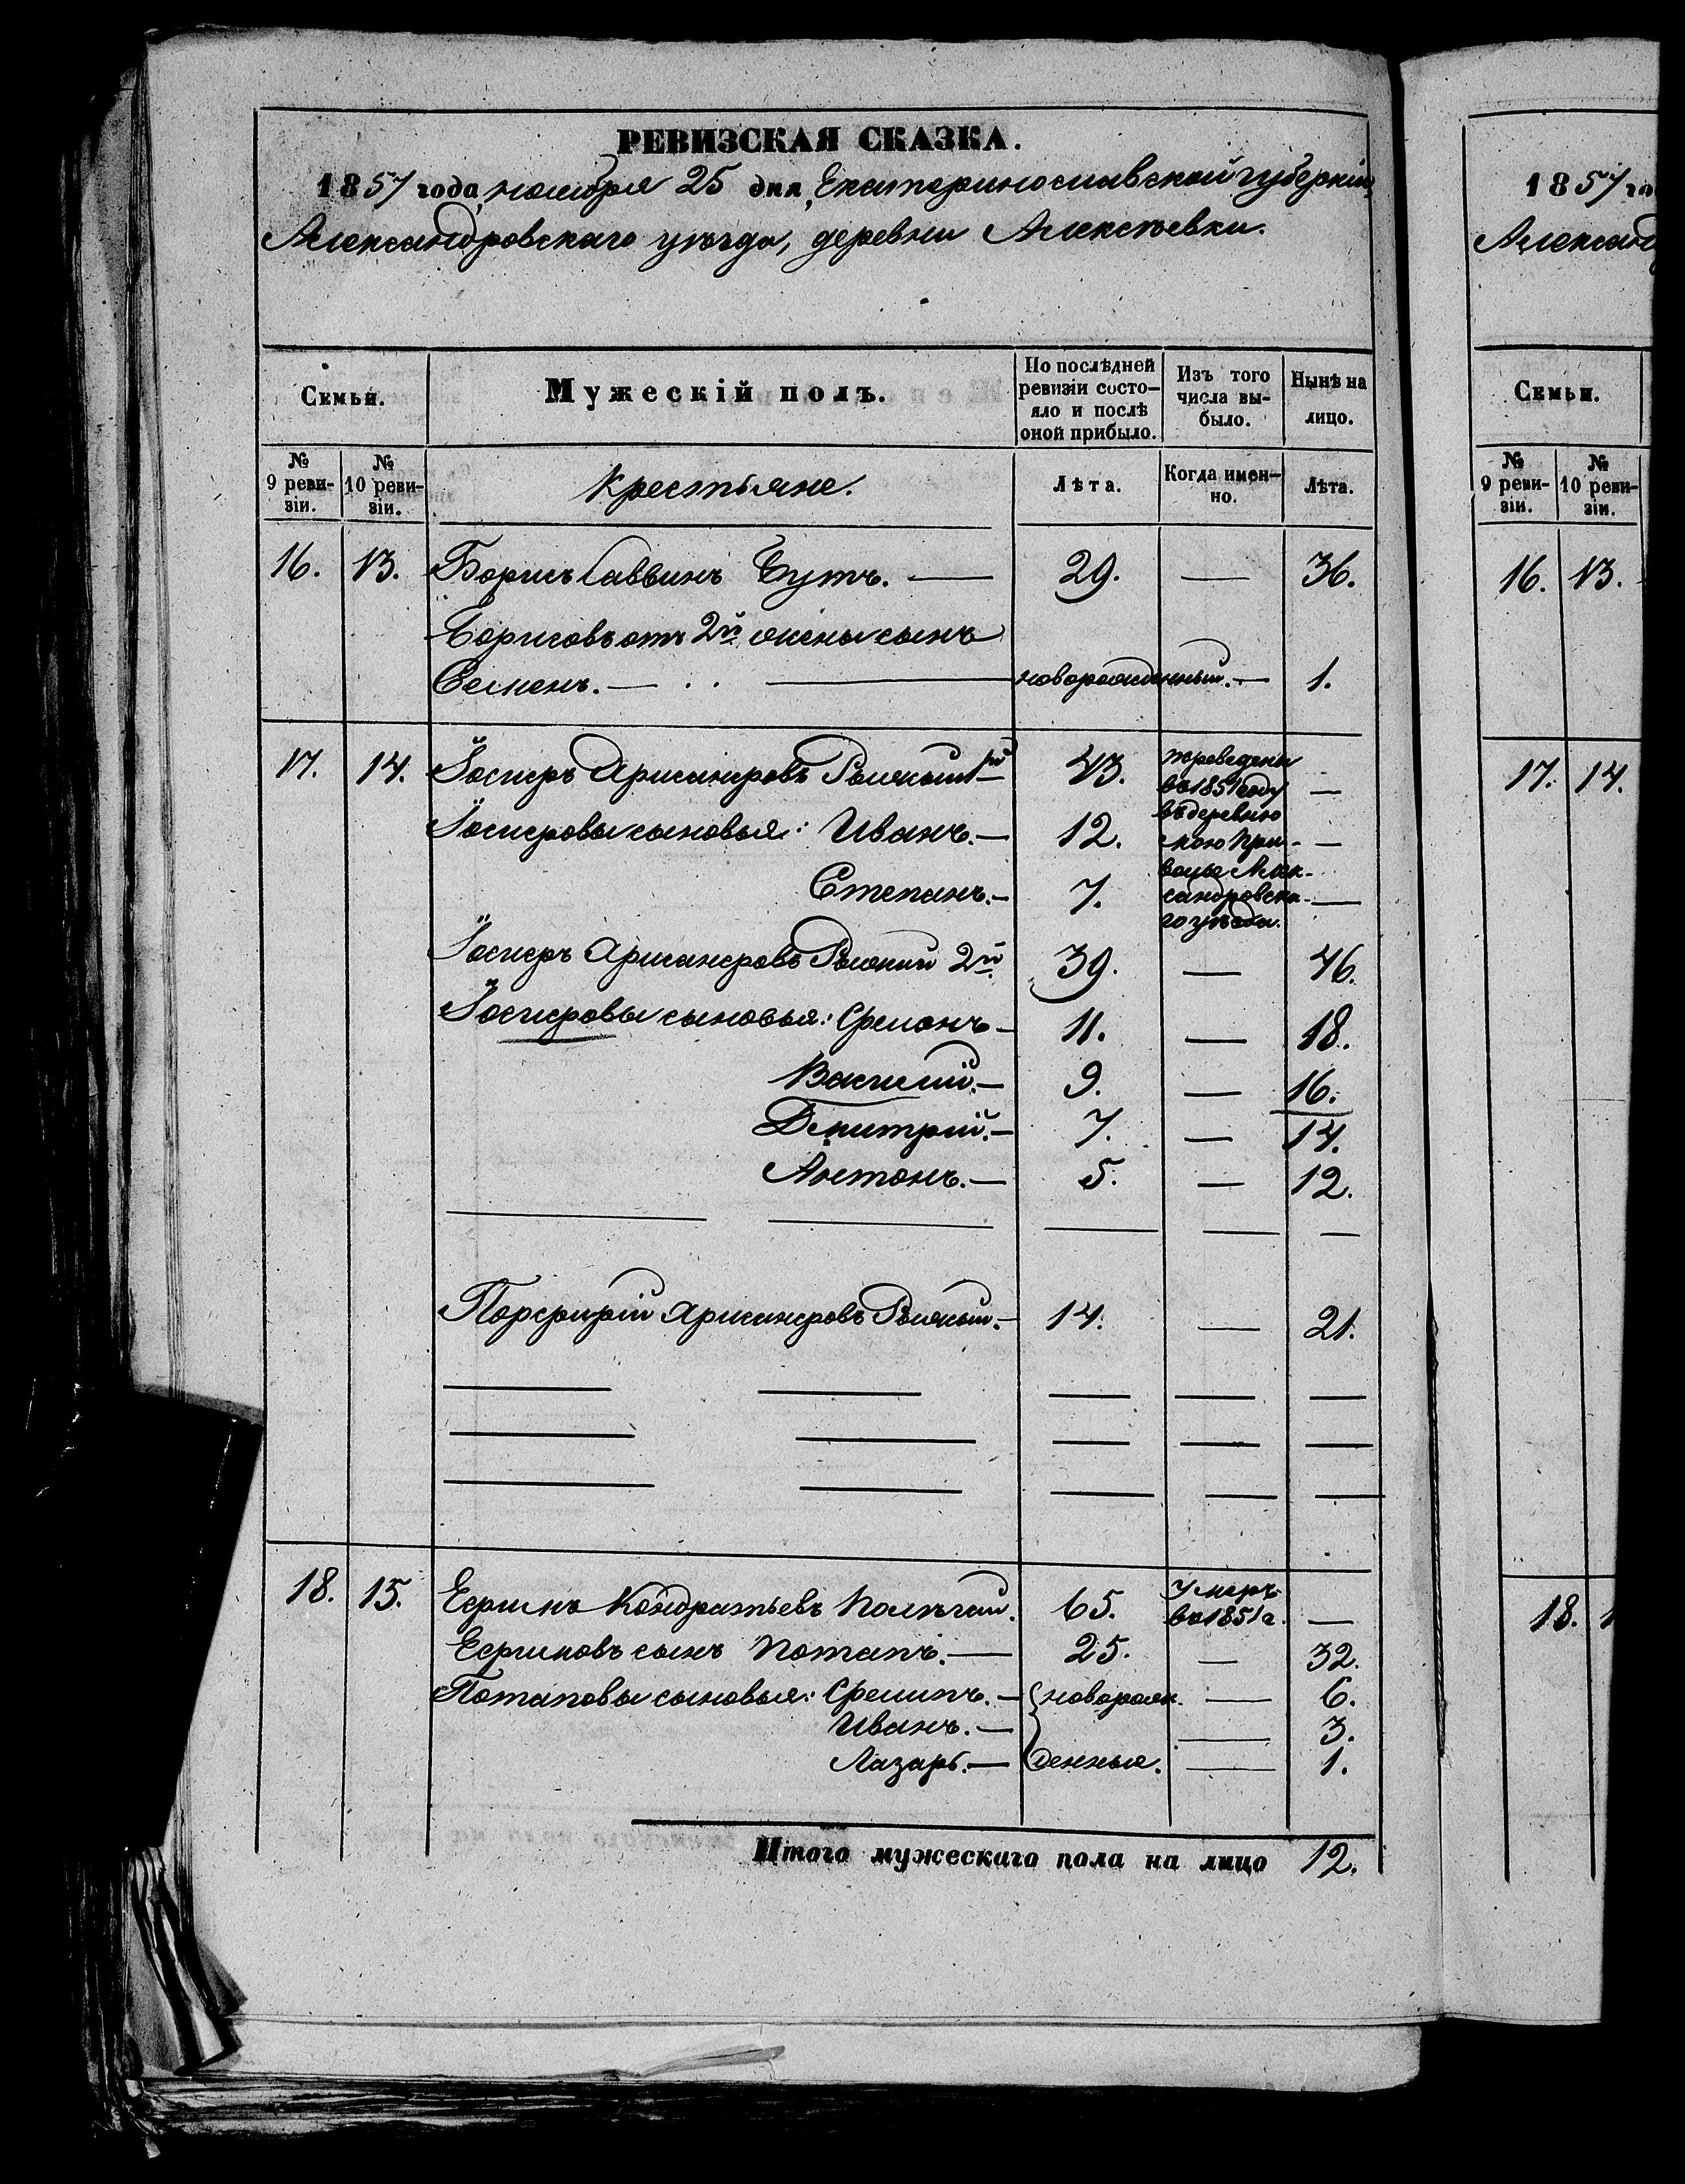 РЕВИЗСКАЯ СКАЗКА.
1857 года, ноября 25 дня, Екатеринославской губерніи,
Александровскаго уѣзда, деревни Алексѣевки.
Семьи.
Мужескій полъ.
По послѣдней ревизіи состояло и послѣ оной прибыло.
Изъ того числа выбыло.
Нынѣ на лицо.
№ 9 ревизіи.
№ 10 ревизіи.
Крестьяне.
Лѣта.
Когда именно.
Лѣта.
16. 13. Борисъ Саввинъ Бутъ. — 29. — 36.
Борисовъ отъ 2й жены сынъ
Семенъ. — новорожденный. — 1.
17. 14. Іосифъ Арисанфровъ 1й 43. переведены —
въ 1851 году
въ деревню
Іосифовы сыновья: Иванъ. — 12. —
Степанъ. — 7. Александровска- —
го уѣзда.
Іосифъ 2й 39. — 46.
Іосифовы сыновья: — 11. — 18.
Василий. — 9. — 16.
Дмитрій. — 7. — 14.
Антонъ. — 5. — 12.
Порфирій 14. — 21.
18. 15. Ефимъ Кондратьевъ 65. умеръ —
въ 1851 г.
Ефимовъ сынъ Потапъ. — 25. — 32.
Потаповы сыновья: Филипъ. — новорож- — 6.
Иванъ. — — 3.
Лазарь. — денные. — 1.
Итого мужескаго пола на лицо 12.
1857 го
Александ
Семьи.
№ 9 ревизіи.
№ 10 ревизіи.
16. 13.
17. 14.
18. 1